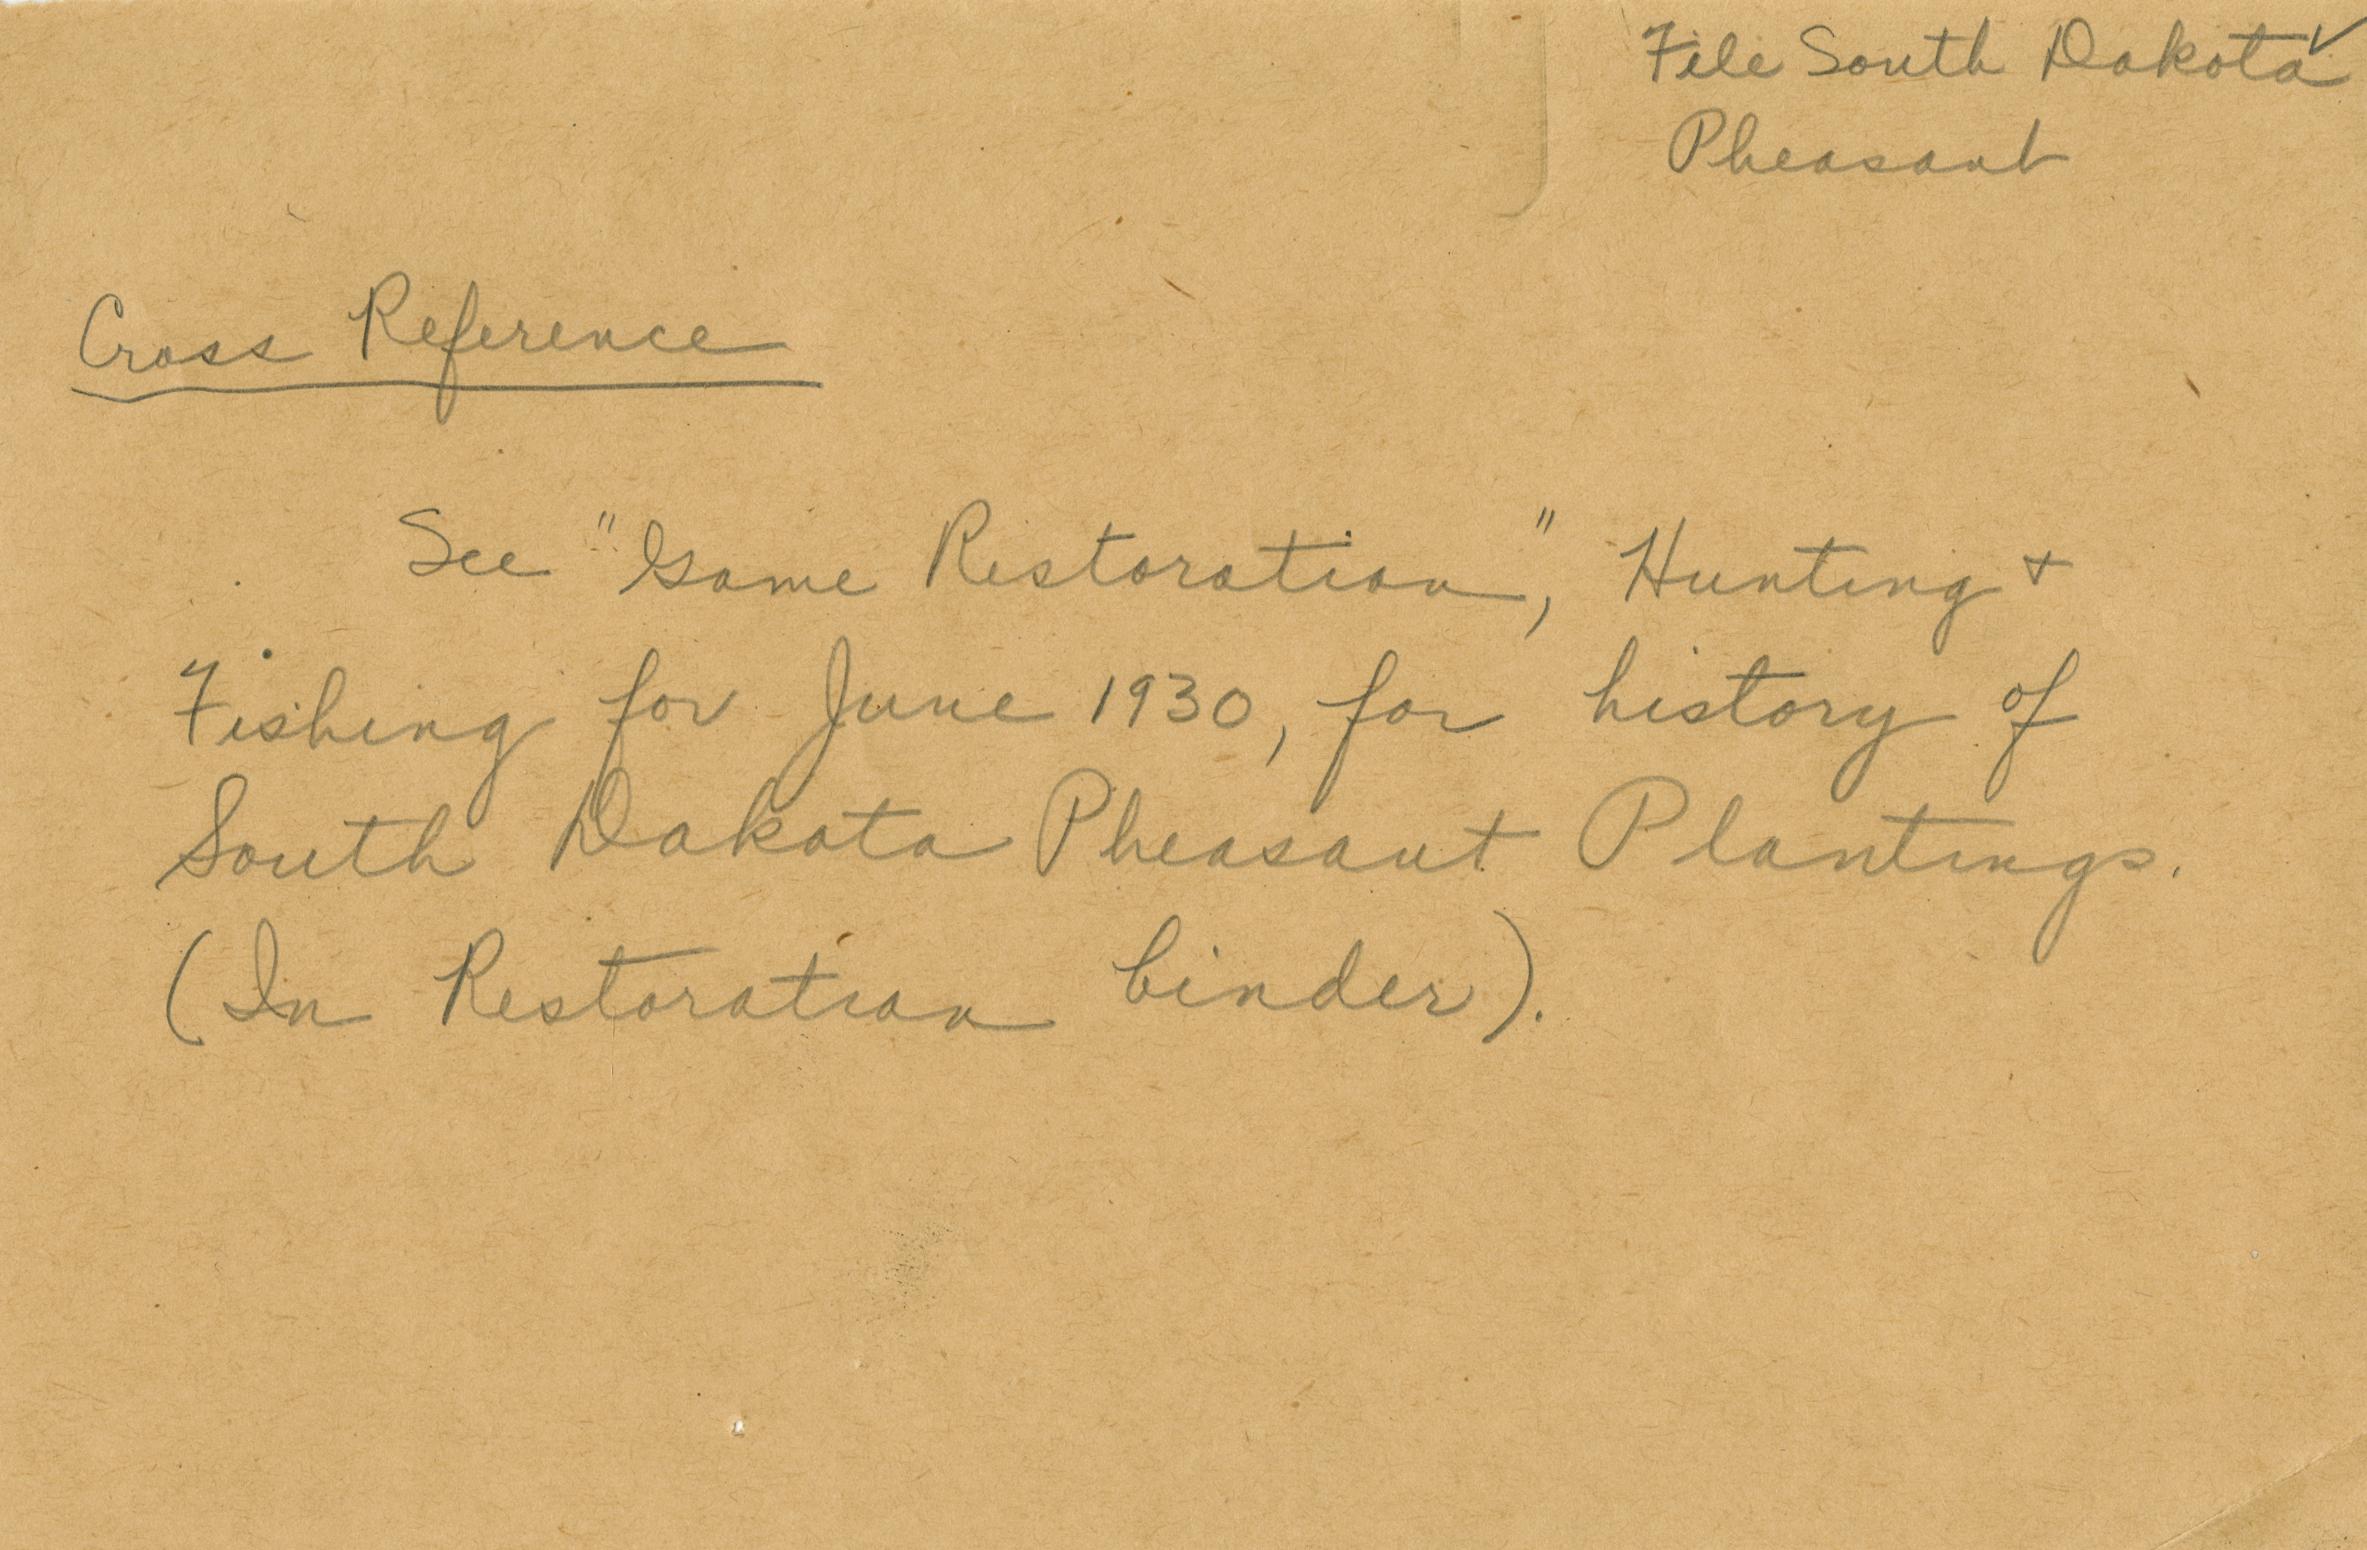 File South Dakota ✓
Pheasant
Cross Reference
See "Game Restoration," Hunting +
Fishing for June 1930, for history of
South Dakota Pheasant Plantings.
(In Restoration binder).